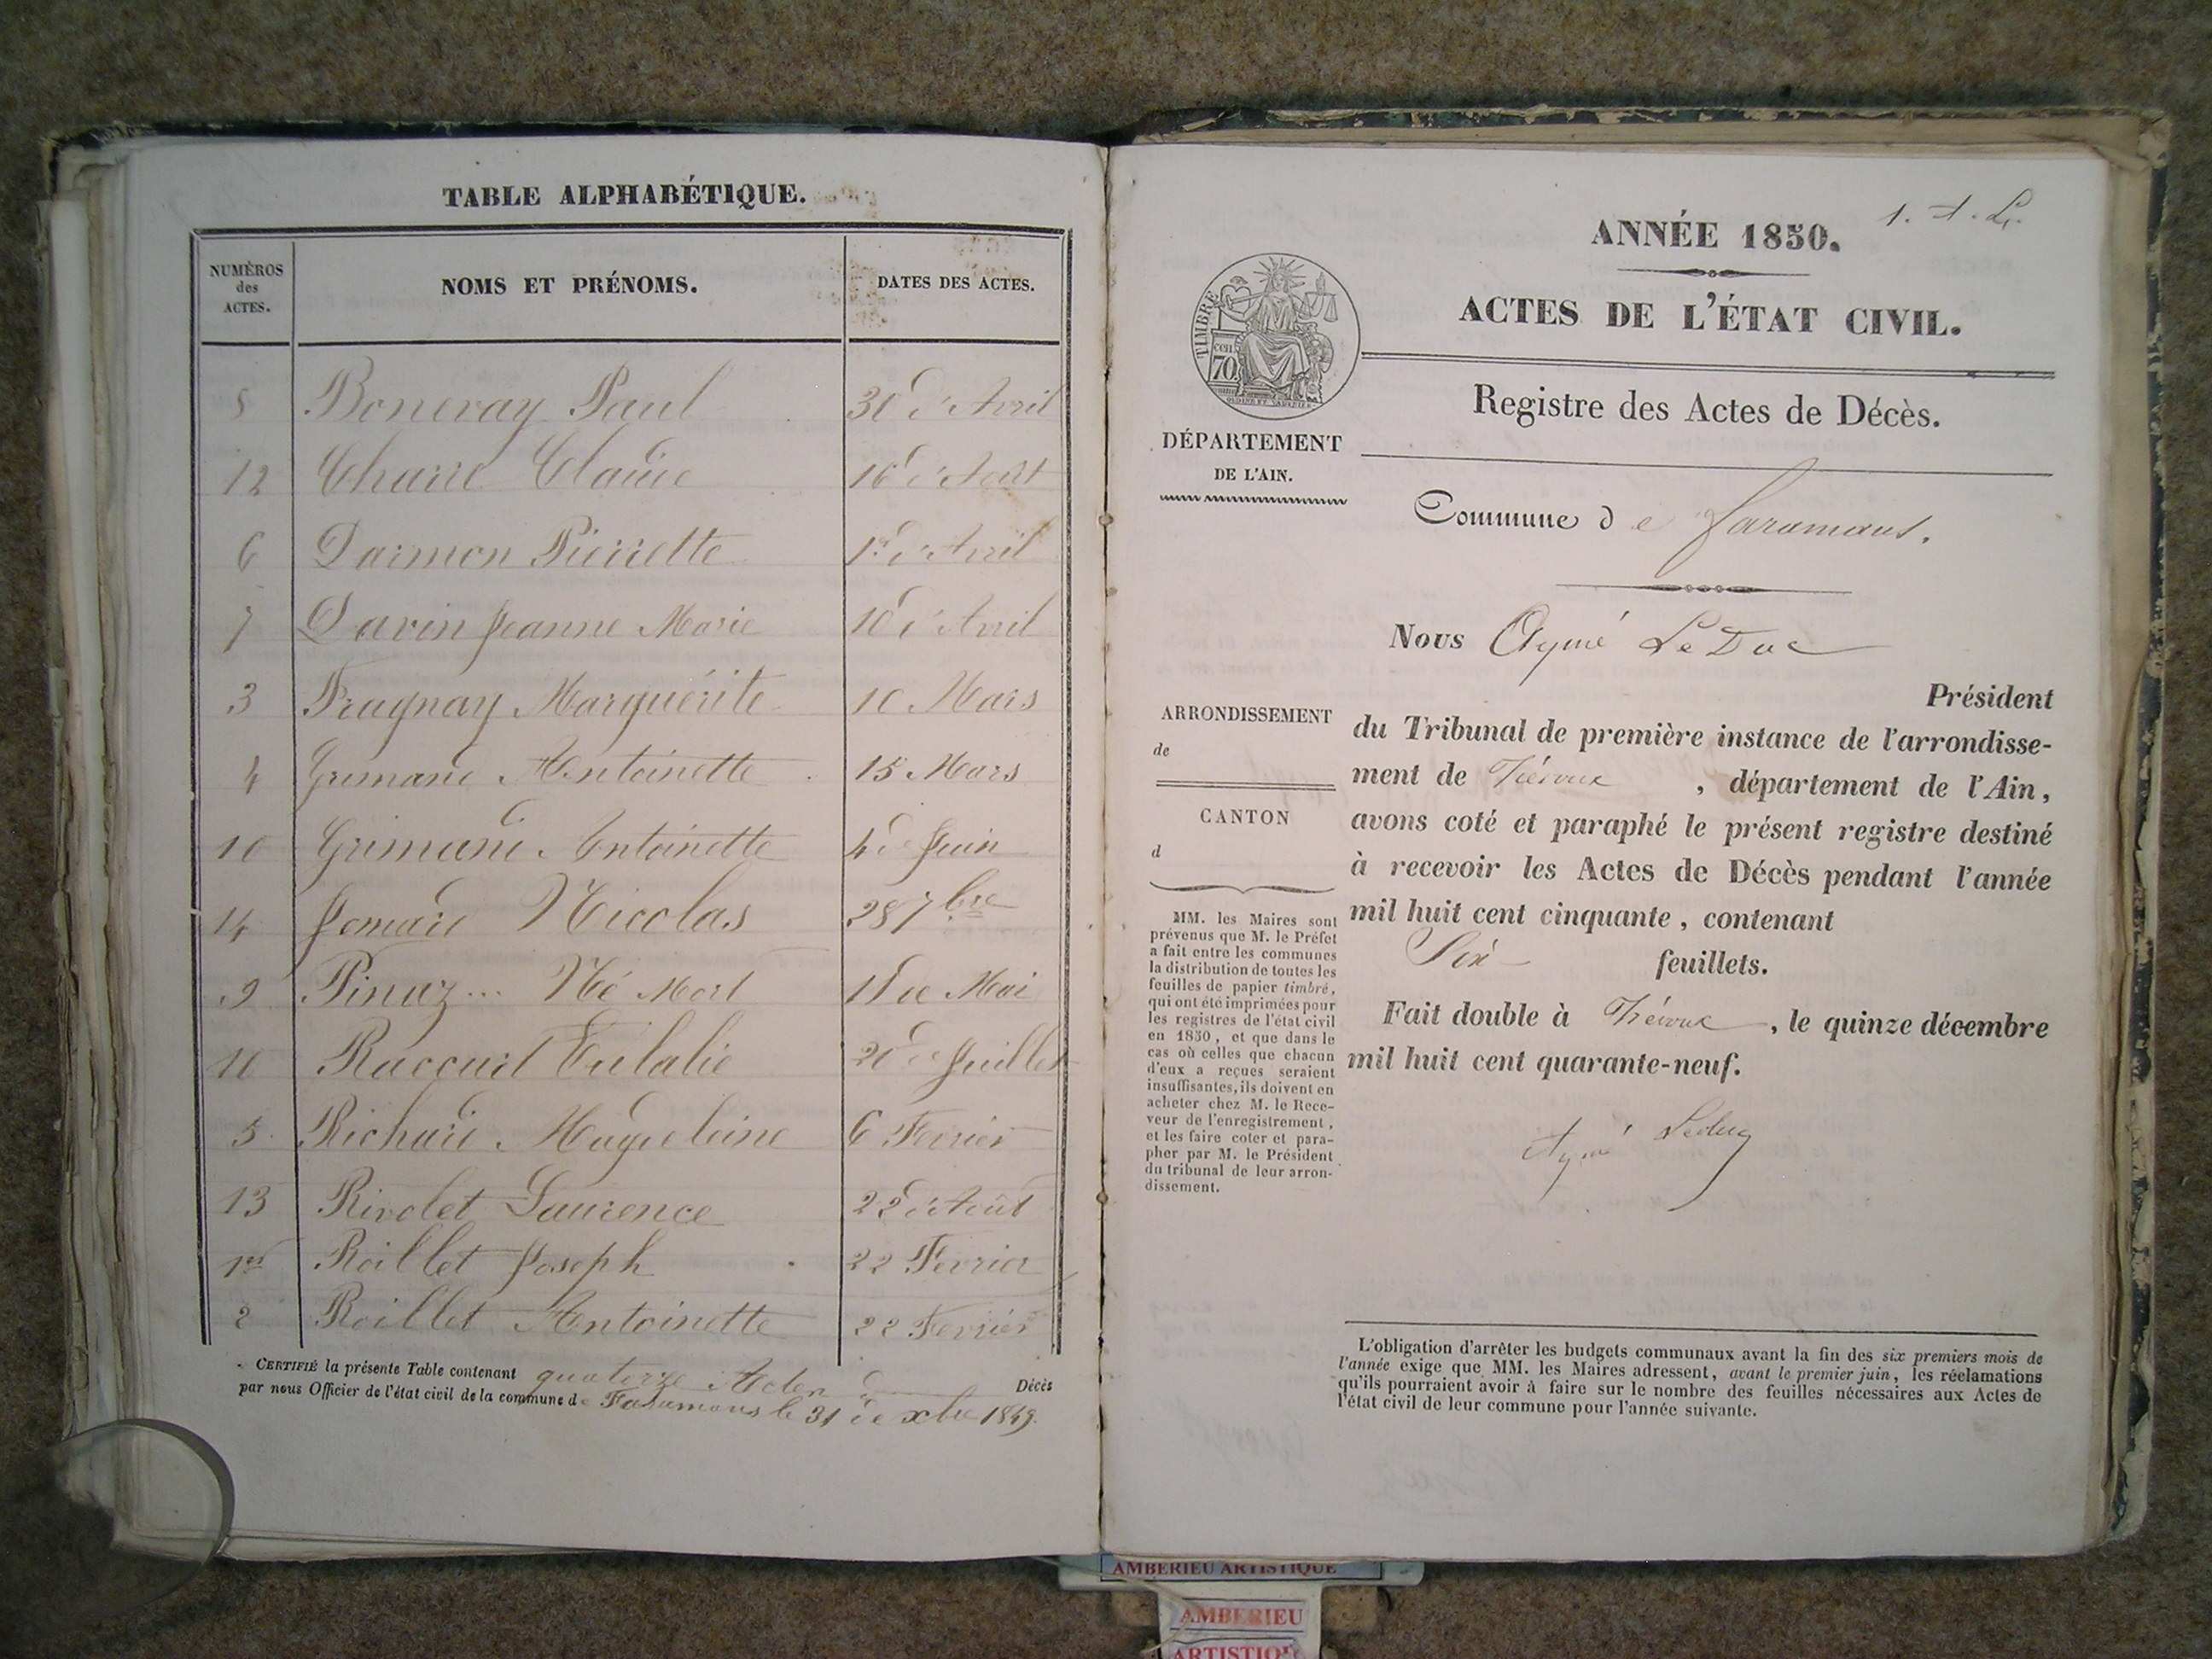 TABLE ALPHABÉTIQUE.
NUMÉROS des ACTES.
NOMS ET PRÉNOMS.
DATES DES ACTES.
8 Boneray Paul 30 d'Avril
12 Charre Claude 16 d'Août
6 Darmon Pierrette 1er d'Avril
7 Davin Jeanne Marie 10 d'Avril
3 Fragnay Marguérite 10 Mars
4 Grimand Antoinette 15 Mars
10 Grimand Antoinette 4 de Juin
14 Jomard Nicolas 28 7bre
9 Pinaz... Né Mort 11 de Mai
11 Raccurt Eulalie 20 de Juillet
5 Richard Magdeleine 6 Fevrier
13 Rivolet Laurence 22 d'Août
1er Roillet Joseph 22 Fevrier
2 Roillet Antoinette 22 Fevrier
CERTIFIÉ la présente Table contenant quatorze Actes de Décès
par nous Officier de l'état civil de la commune de Faramans le 31 de xbre 1849.
1. A. L.
ANNÉE 1850.
ACTES DE L'ÉTAT CIVIL.
TIMBRE
cen.
70
Registre des Actes de Décès.
DÉPARTEMENT
DE L'AIN.
Commune de faramans.
Nous Aymé LeDuc
Président
du Tribunal de première instance de l'arrondisse-
ment de Trévoux , département de l'Ain,
avons coté et paraphé le présent registre destiné
à recevoir les Actes de Décès pendant l'année
mil huit cent cinquante, contenant
Six feuillets.
Fait double à Trévoux , le quinze décembre
mil huit cent quarante-neuf.
Aymé Leduc
ARRONDISSEMENT
de
CANTON
d
MM. les Maires sont
prévenus que M. le Préfet
a fait entre les communes
la distribution de toutes les
feuilles de papier timbré,
qui ont été imprimées pour
les registres de l'état civil
en 1850, et que dans le
cas où celles que chacun
d'eux a reçues seraient
insuffisantes, ils doivent en
acheter chez M. le Rece-
veur de l'enregistrement,
et les faire coter et para-
pher par M. le Président
du tribunal de leur arron-
dissement.
L'obligation d'arrêter les budgets communaux avant la fin des six premiers mois de
l'année exige que MM. les Maires adressent, avant le premier juin, les réclamations
qu'ils pourraient avoir à faire sur le nombre des feuilles nécessaires aux Actes de
l'état civil de leur commune pour l'année suivante.
AMBERIEU ARTISTIQUE
AMBERIEU
ARTISTIQ